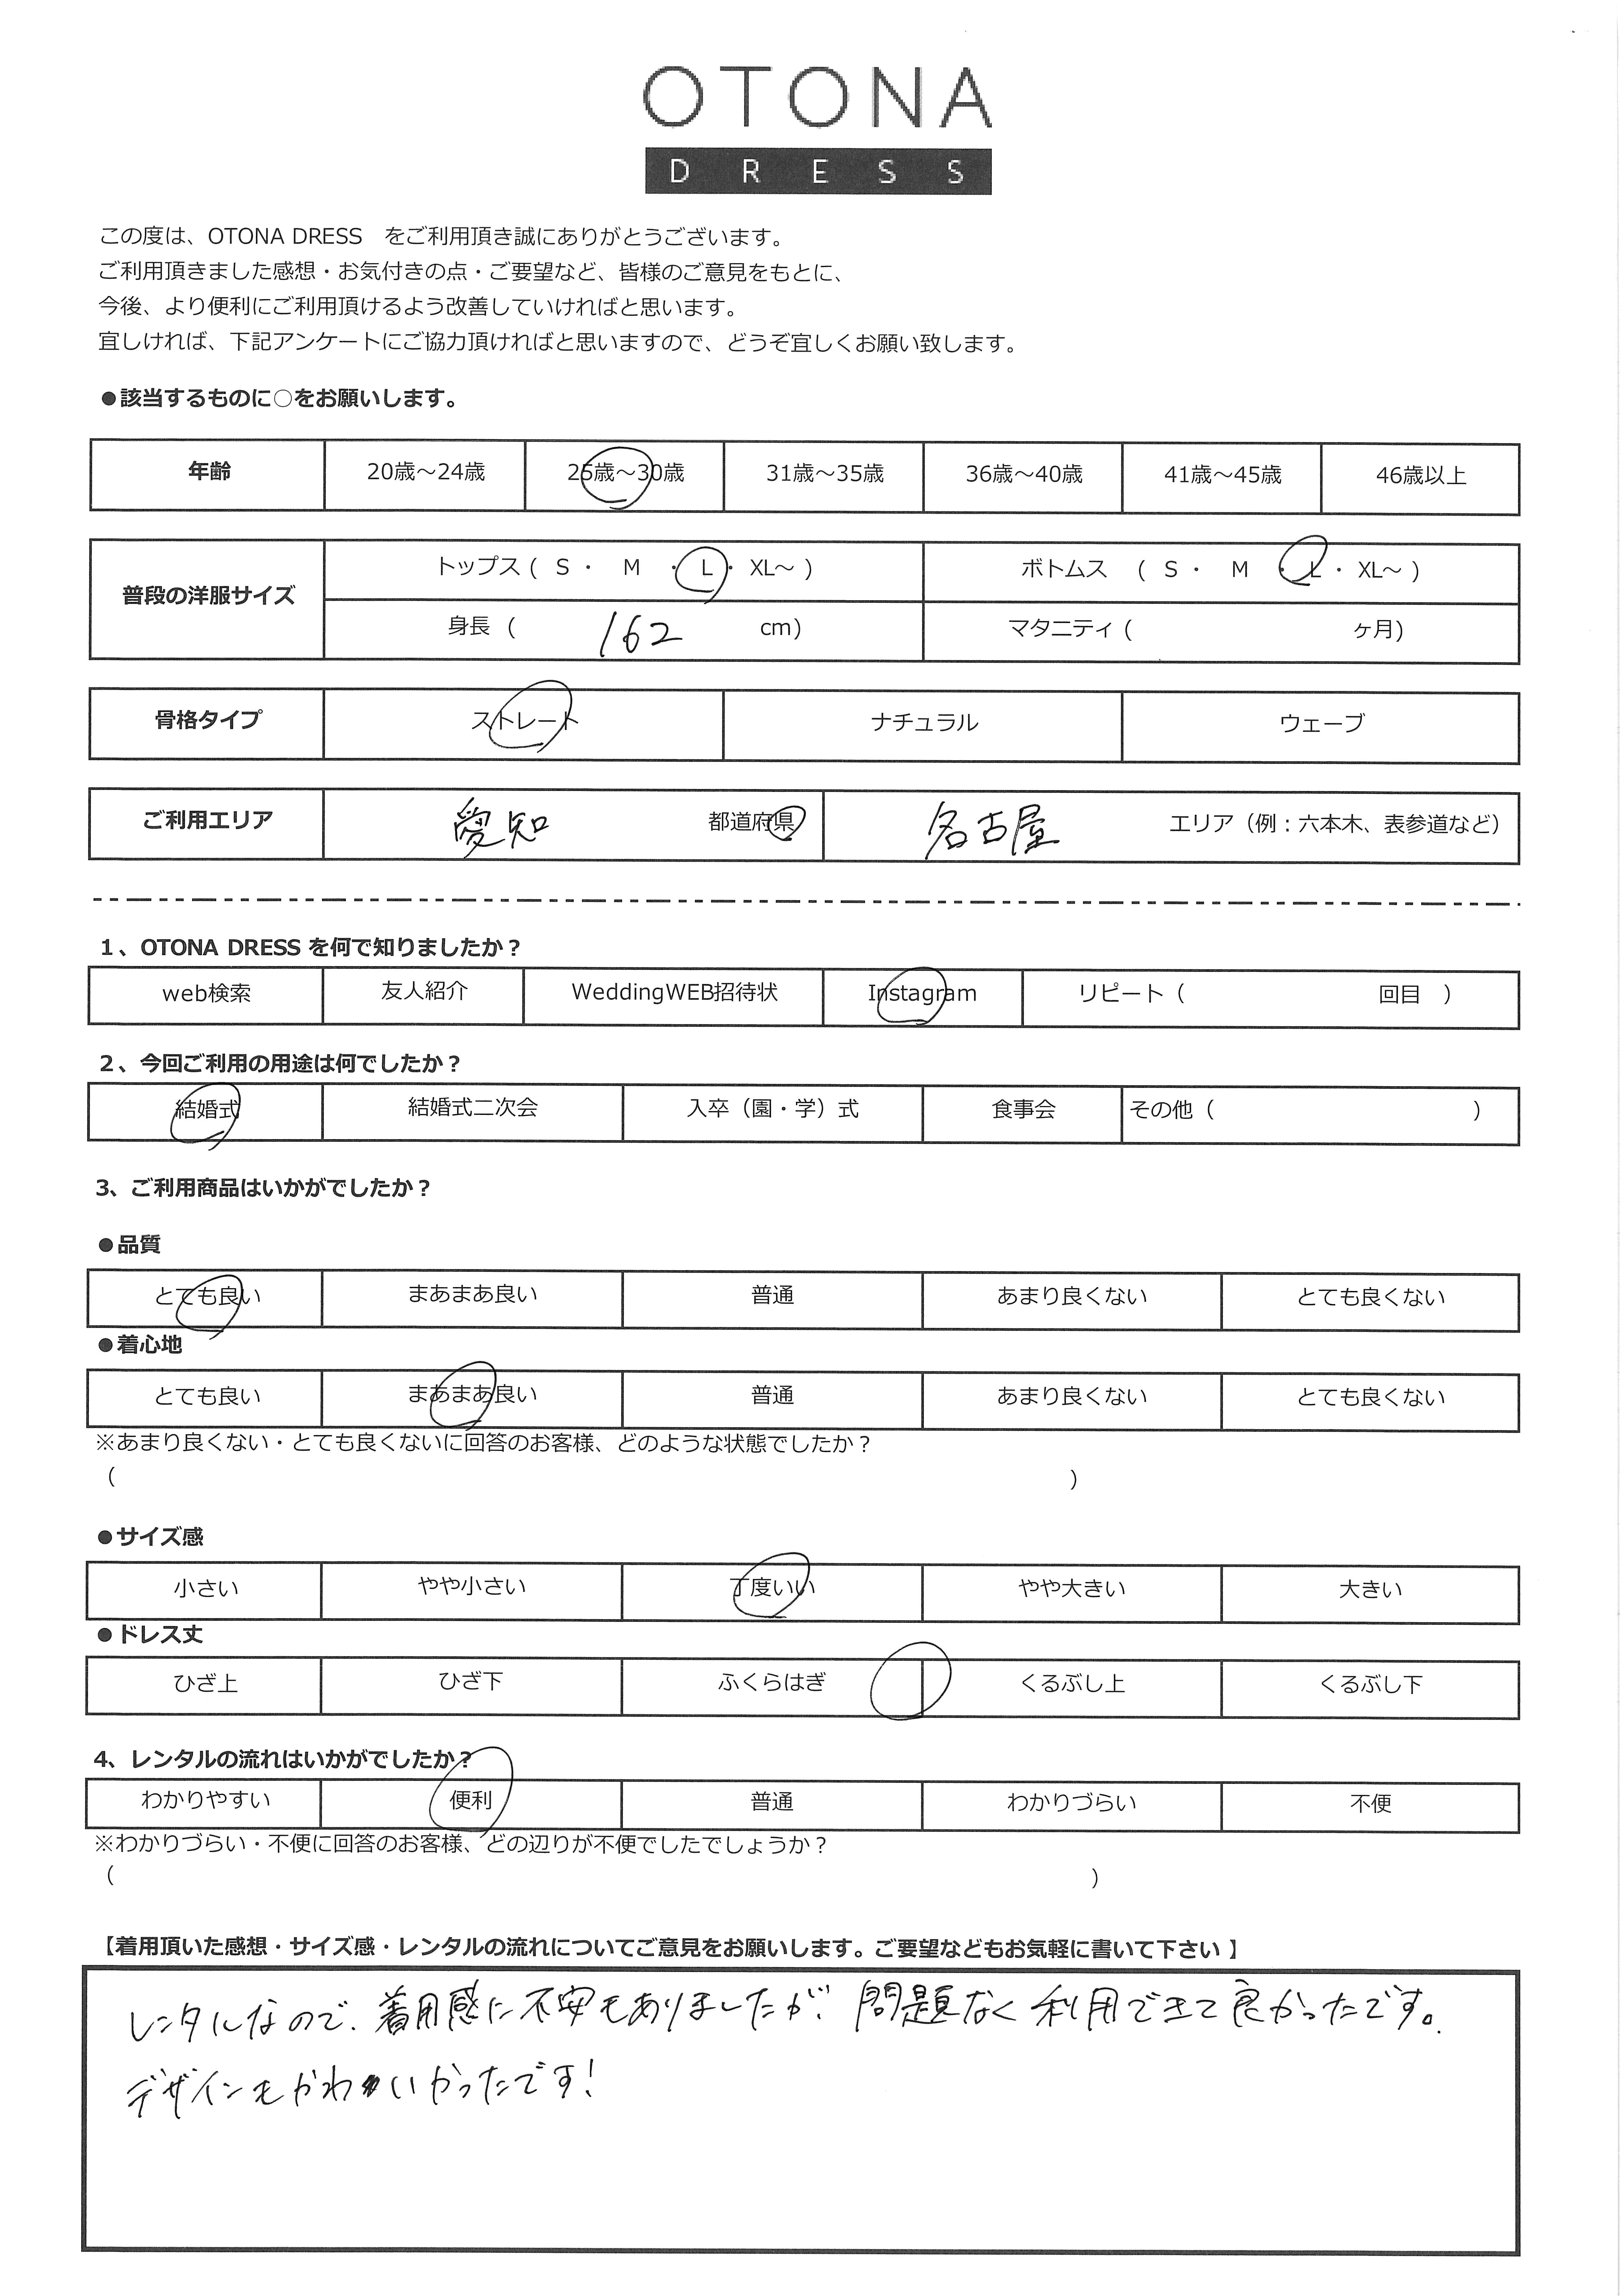 OTONA
DRESS
この度は、OTONA DRESS をご利用頂き誠にありがとうございます。
ご利用頂きました感想・お気付きの点・ご要望など、皆様のご意見をもとに、
今後、より便利にご利用頂けるよう改善していければと思います。
宜しければ、下記アンケートにご協力頂ければと思いますので、どうぞ宜しくお願い致します。
●該当するものに○をお願いします。
年齢 20歳～24歳 25歳～30歳 31歳～35歳 36歳～40歳 41歳～45歳 46歳以上
普段の洋服サイズ トップス ( S ・ M ・ L ・ XL～ ) ボトムス ( S ・ M ・ L ・ XL～ )
身長 ( 162 cm) マタニティ ( ヶ月)
骨格タイプ ストレート ナチュラル ウェーブ
ご利用エリア 愛知 都道府県 名古屋 エリア（例：六本木、表参道など）
1、OTONA DRESS を何で知りましたか？
web検索 友人紹介 WeddingWEB招待状 Instagram リピート（ 回目 ）
2、今回ご利用の用途は何でしたか？
結婚式 結婚式二次会 入卒（園・学）式 食事会 その他（ ）
3、ご利用商品はいかがでしたか？
●品質
とても良い まあまあ良い 普通 あまり良くない とても良くない
●着心地
とても良い まあまあ良い 普通 あまり良くない とても良くない
※あまり良くない・とても良くないに回答のお客様、どのような状態でしたか？
（ ）
●サイズ感
小さい やや小さい 丁度いい やや大きい 大きい
●ドレス丈
ひざ上 ひざ下 ふくらはぎ くるぶし上 くるぶし下
4、レンタルの流れはいかがでしたか？
わかりやすい 便利 普通 わかりづらい 不便
※わかりづらい・不便に回答のお客様、どの辺りが不便でしたでしょうか？
（ ）
【着用頂いた感想・サイズ感・レンタルの流れについてご意見をお願いします。ご要望などもお気軽に書いて下さい 】
レンタルなので、着用感に不安もありましたが、問題なく利用できて良かったです。
デザインもかわいかったです！